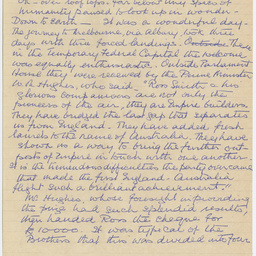 humanity paused to look up in wonder -
Down to Earth — It was a wonderful day.
The journey to Melbourne, via Albury took three
days with three forced landings. There
in the temporary Federal Capital the welcome
was equally enthusiastic. Outside Parliament
House they were received by the Prime Minister
W. M. Hughes, who said: "Ross Smith & his
glorious companions are not only the
pioneers of the air, they are Empire builders.
They have bridged the last gap that separates
us from England. They have added fresh
laurels to the name of Australia. They have
shown us a way to bring the further out
posts of Empire in touch with one another.
It is the immense difficulties the party overcame
that made the first England-Australia
flight such a brilliant achievement."
Mr Hughes, whose foresight in providing
the prize had such splendid results,
then handed Ross the cheque for
£10000. It was typical of the
Brothers that this was divided into four